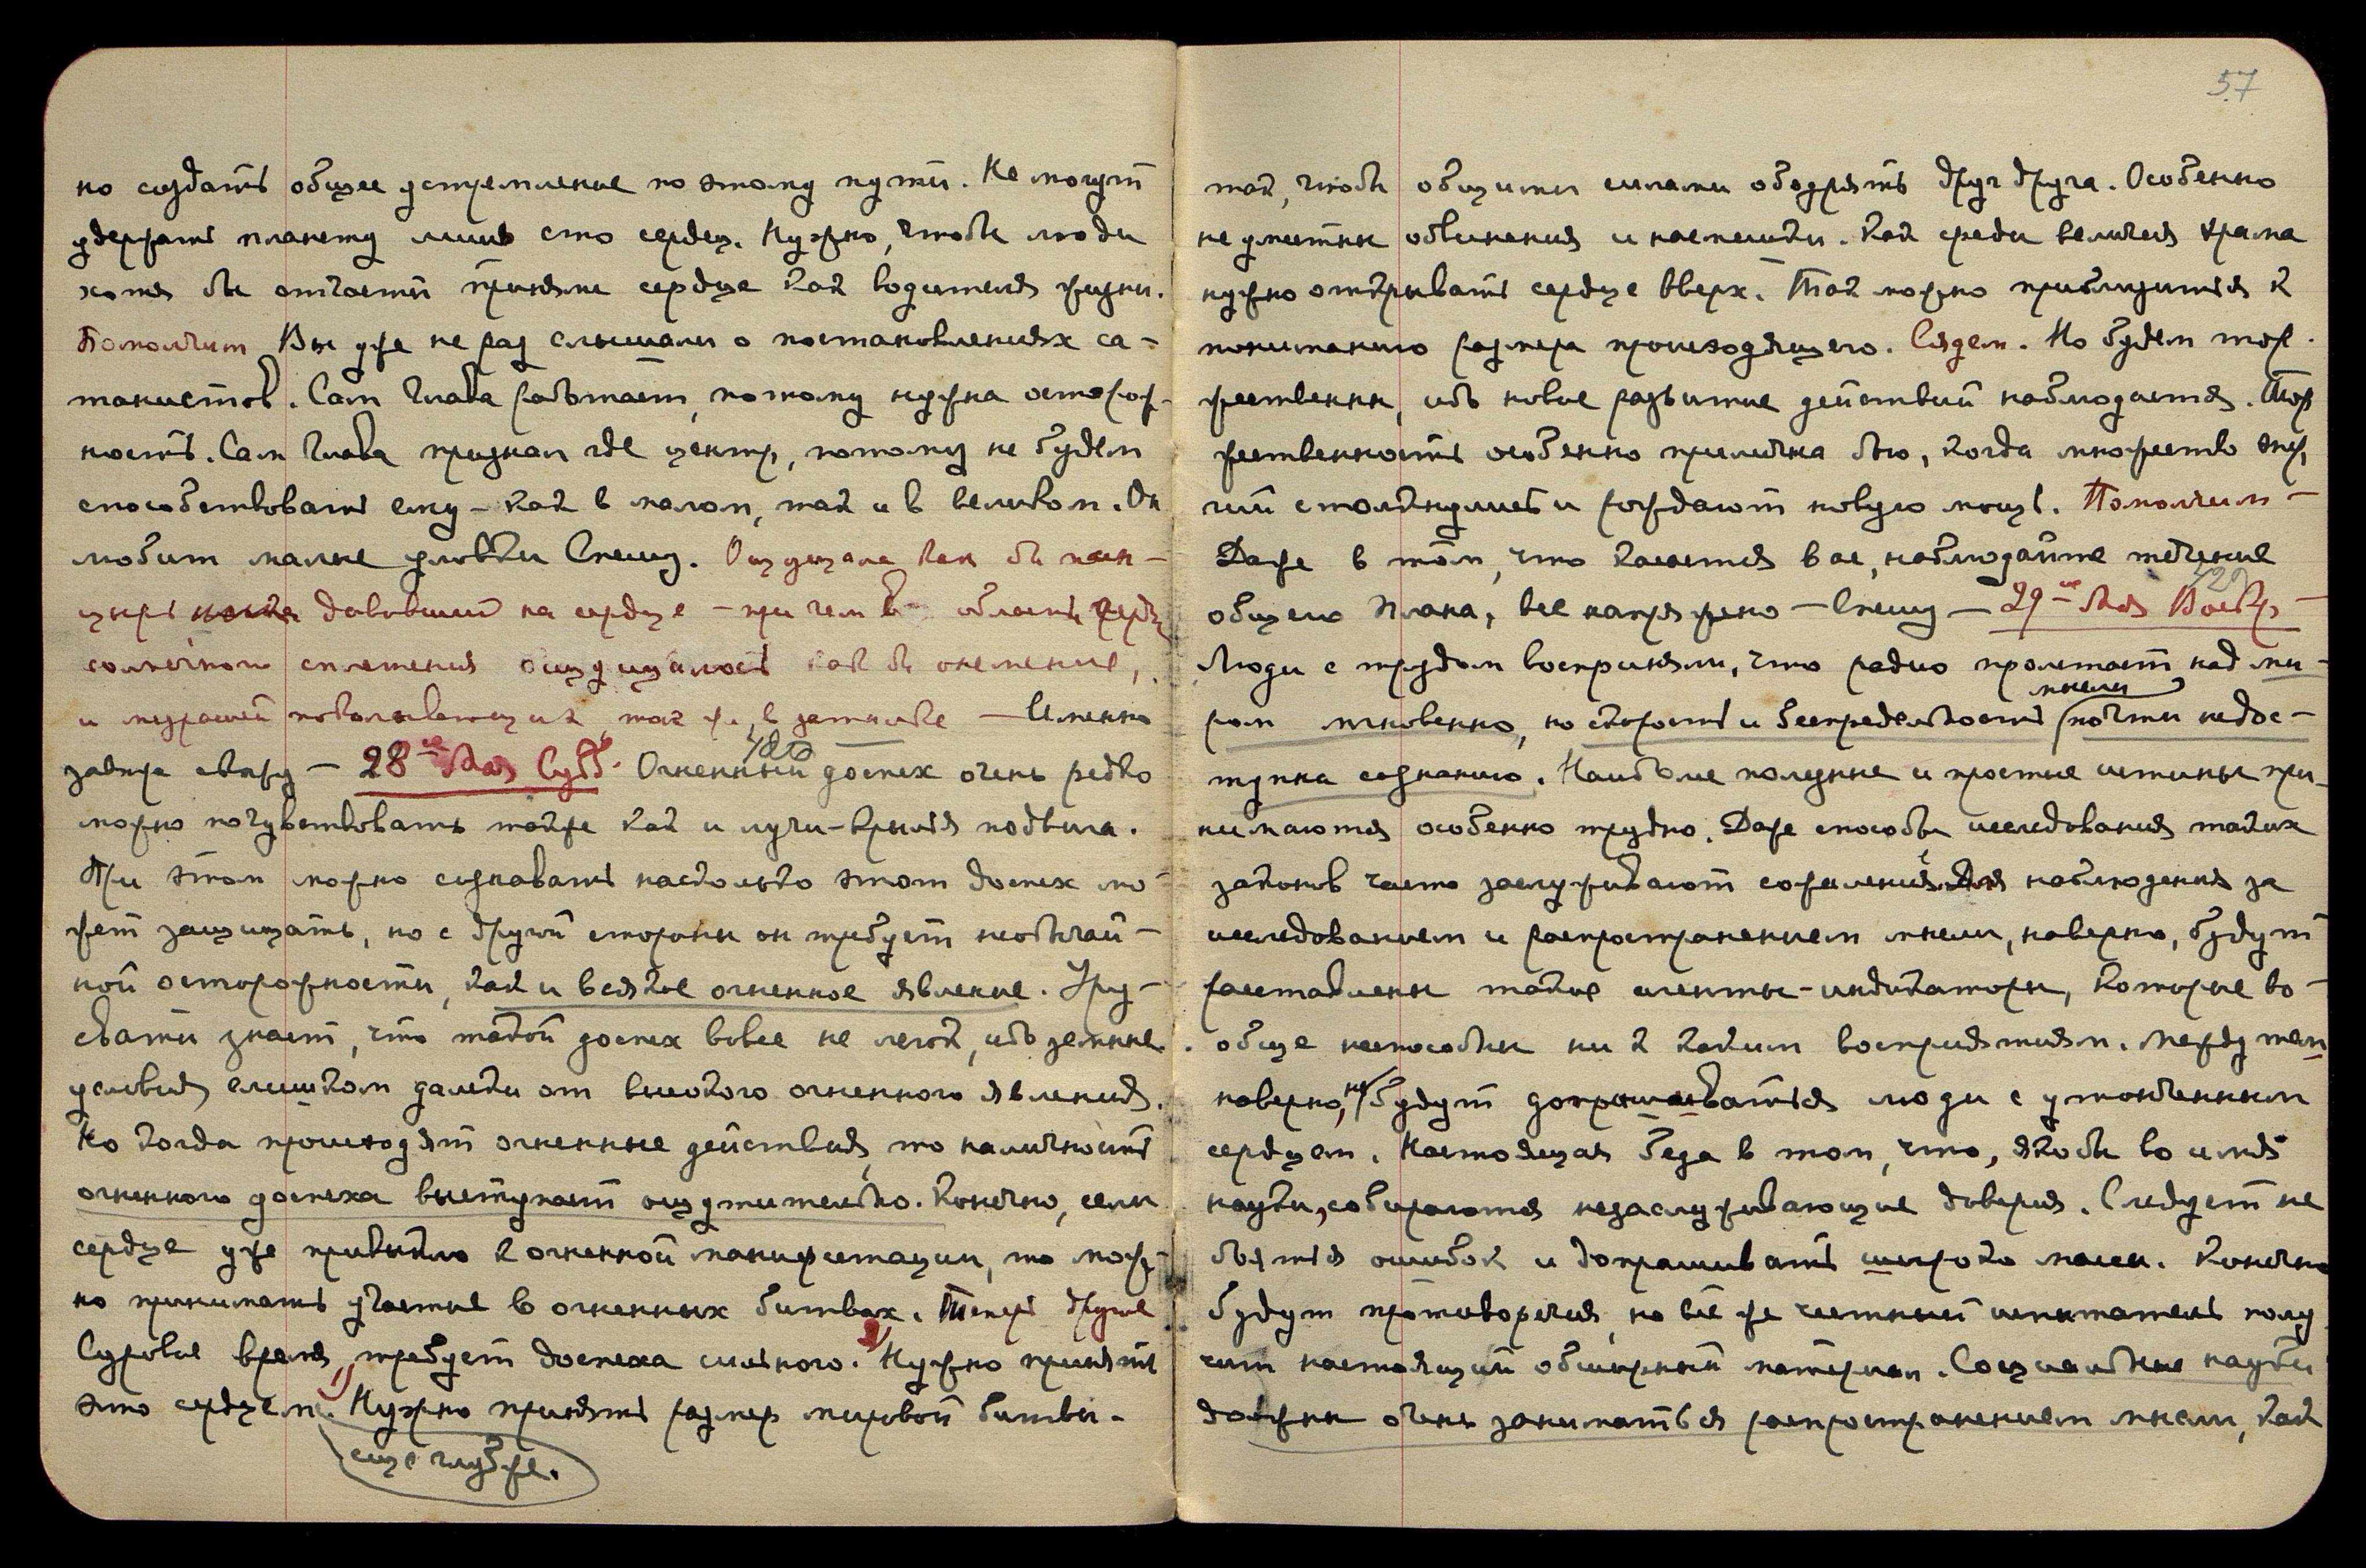 но создать общее устремление по этому пути. Не могут
удержать планету лишь сто сердец. Нужно, чтобы люди
хотя бы отчасти приняли сердце как водителя жизни.
Помолчим Вы уже не раз слышали о постановлениях са-
танистов. Сам Глава работает, потому нужна осторож-
ность. Сам Глава признал где центр, потому не будем
способствовать ему – как в малом, так и в великом. Он
любит малые уловки Спешу. Ощущала как бы пан-
цырь давивший на сердце – при чем в области
солнечного сплетения ощущалось как бы онемение,
и мурашей покалывающих, так же в затылке – Именно
завтра свяжу – 28-ое Мая Субб. Огненный доспех очень редко
можно почувствовать также как и лучи-крылья подвига.
При этом можно сознавать насколько этот доспех мо-
жет защищать, но с другой стороны он требует необычай-
ной осторожности, как и всякое огненное явление. Уру-
свати знает, что такой доспех вовсе не легок, ибо земные
условия слишком далеки от высокого огненного явления.
Но когда происходят огненные действия, то наличность
огненного доспеха выступает ощутительно. Конечно, если
сердце уже привыкло к огненной манифестации, то мож-
но принимать участие в огненных битвах. Теперь другое
Суровое время, требует доспеха сильного. 2) Нужно принять
это сердцем. 1) Нужно принять размер мировой битвы.
еще глубже.
57
так, чтобы общими силами ободрять друг друга. Особенно
не уместны обвинения и насмешки. Как среди величия Храма
нужно открывать сердце вверх. Так можно приблизиться к
пониманию размера происходящего. Сядем. Но будем тор-
жественны, ибо новое развитие действий наблюдается. Тор
жественность особенно прилична была, когда множество энер
гий столкнулись и рождают новую мощь. Помолчим –
Даже в том, что касается вас, наблюдайте течение
общего Плана, все напряжено – Спешу – 29-ое Мая Воскр –
Люди с трудом восприняли, что радио пролетает над ми-
мысли
ром мгновенно, но скорость и беспредельность почти недос-
тупна сознанию. Наиболее полезные и простые истины при-
нимаются особенно трудно. Даже способы исследования таких
законов часто заслуживают сожаления. Для наблюдения за
исследованием и распространением мысли, наверно, будут
расставлены такие агенты-индикаторы, которые во-
обще неспособны ни к каким восприятиям. Между тем
наверно, не будут допрашиваться люди с утонченным
сердцем. Настоящая беда в том, что, якобы во имя
науки, собираются незаслуживающие доверия. Следует не
бояться ошибок и допрашивать широко массы. Конечно
будут противоречия, но все же честный испытатель полу
чит настоящий обширный материал. Социальные науки
должны очень заниматься распространением мысли, как